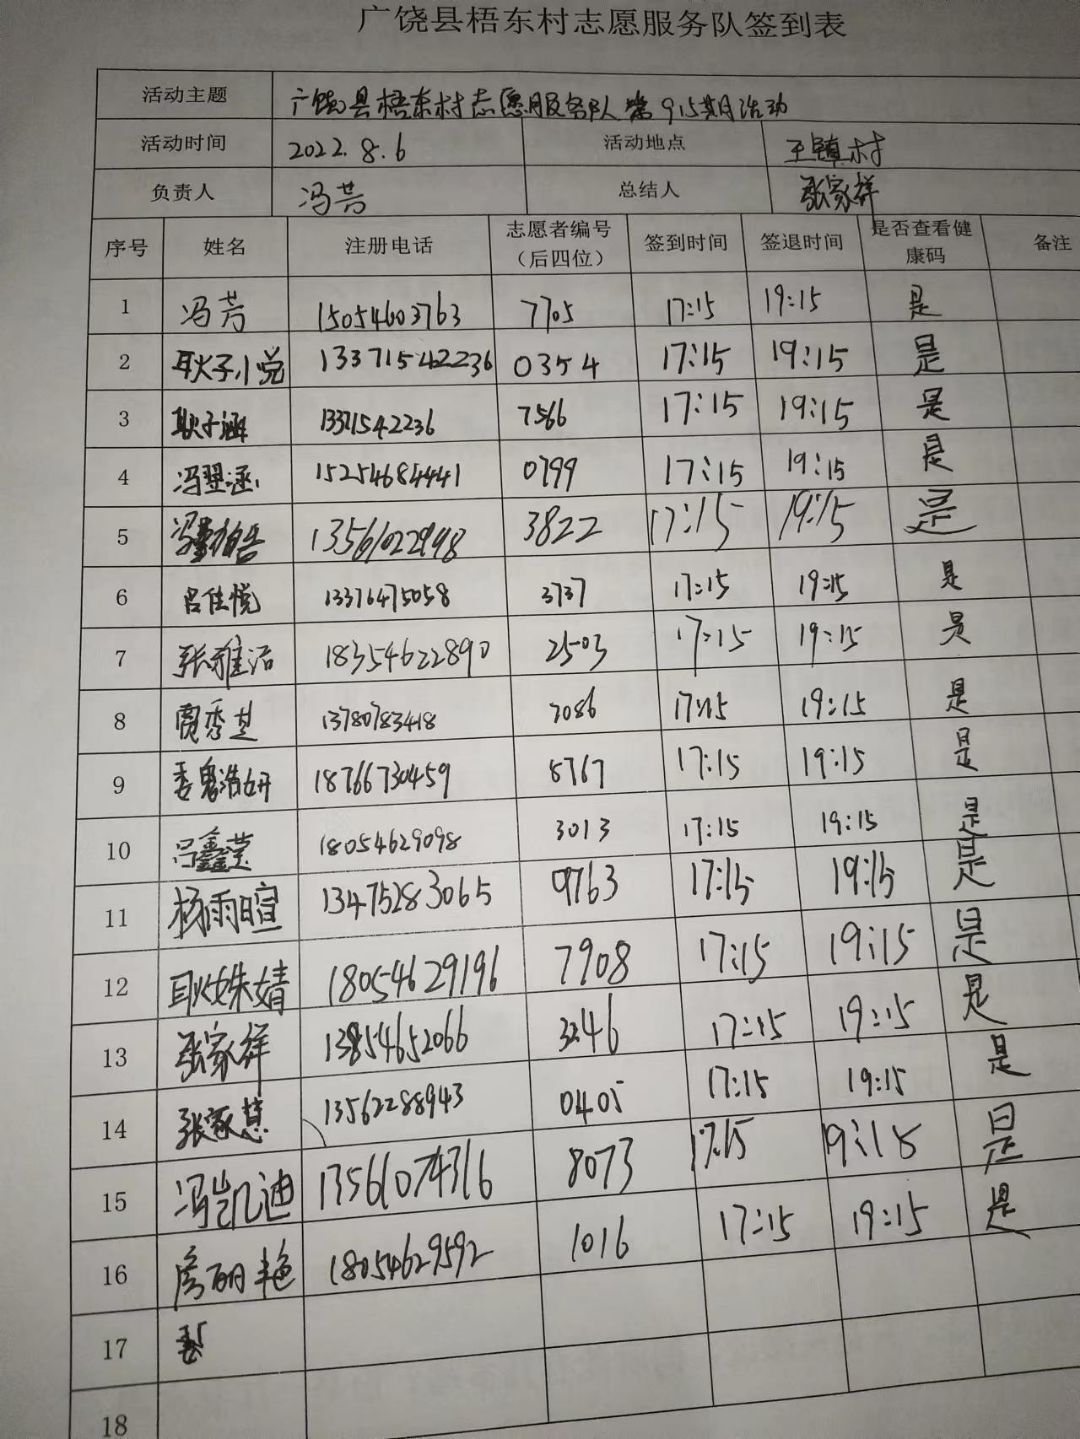 广饶县梧东村志愿服务队签到表
活动主题 广饶县梧东村志愿服务队第915期活动
活动时间 2022.8.6 活动地点 王镇村
负责人 冯芳 总结人 张家祥
序号 姓名 注册电话 志愿者编号（后四位） 签到时间 签退时间 是否查看健康码 备注
1 冯芳 15054603763 7705 17:15 19:15 是
2 耿子小悦 13371542236 0354 17:15 19:15 是
3 耿子涵 13371542236 7566 17:15 19:15 是
4 冯翌涵 15254684441 0799 17:15 19:15 是
5 13561022998 3822 17:15 19:15 是
6 吕佳悦 13376475058 3737 17:15 19:15 是
7 张雅洁 18354622890 2503 17:15 19:15 是
8 贾秀芝 13780783418 7086 17:15 19:15 是
9 18766730459 8767 17:15 19:15 是
10 吕鑫莹 18054629098 3013 17:15 19:15 是
11 杨雨暄 13475283065 0763 17:15 19:15 是
12 耿姝婧 18054629196 7908 17:15 19:15 是
13 张家祥 13854652066 3246 17:15 19:15 是
14 张家慧 13562288943 0405 17:15 19:15 是
15 冯凯迪 13561074316 8073 17:15 19:15 是
16 房丽艳 18054629592 1016 17:15 19:15 是
17
18